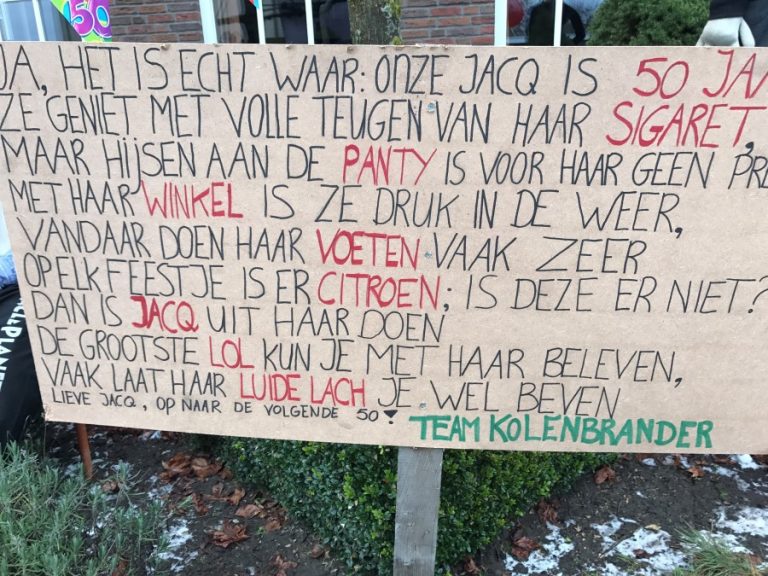 50
JA, HET IS ECHT WAAR: ONZE JACQ IS 50 JAA
ZE GENIET MET VOLLE TEUGEN VAN HAAR SIGARET,
MAAR HIJSEN AAN DE PANTY IS VOOR HAAR GEEN PRE
MET HAAR WINKEL IS ZE DRUK IN DE WEER,
VANDAAR DOEN HAAR VOETEN VAAK ZEER
OP ELK FEESTJE IS ER CITROEN; IS DEZE ER NIET?
DAN IS JACQ UIT HAAR DOEN
DE GROOTSTE LOL KUN JE MET HAAR BELEVEN,
VAAK LAAT HAAR LUIDE LACH JE WEL BEVEN
LIEVE JACQ, OP NAAR DE VOLGENDE 50!
TEAM KOLENBRANDER